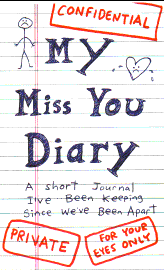 CONFIDENTIAL
My
Miss You
Diary
A short Journal
I've Been Keeping
Since We've Been Apart
PRIVATE
FOR YOUR
EYES ONLY